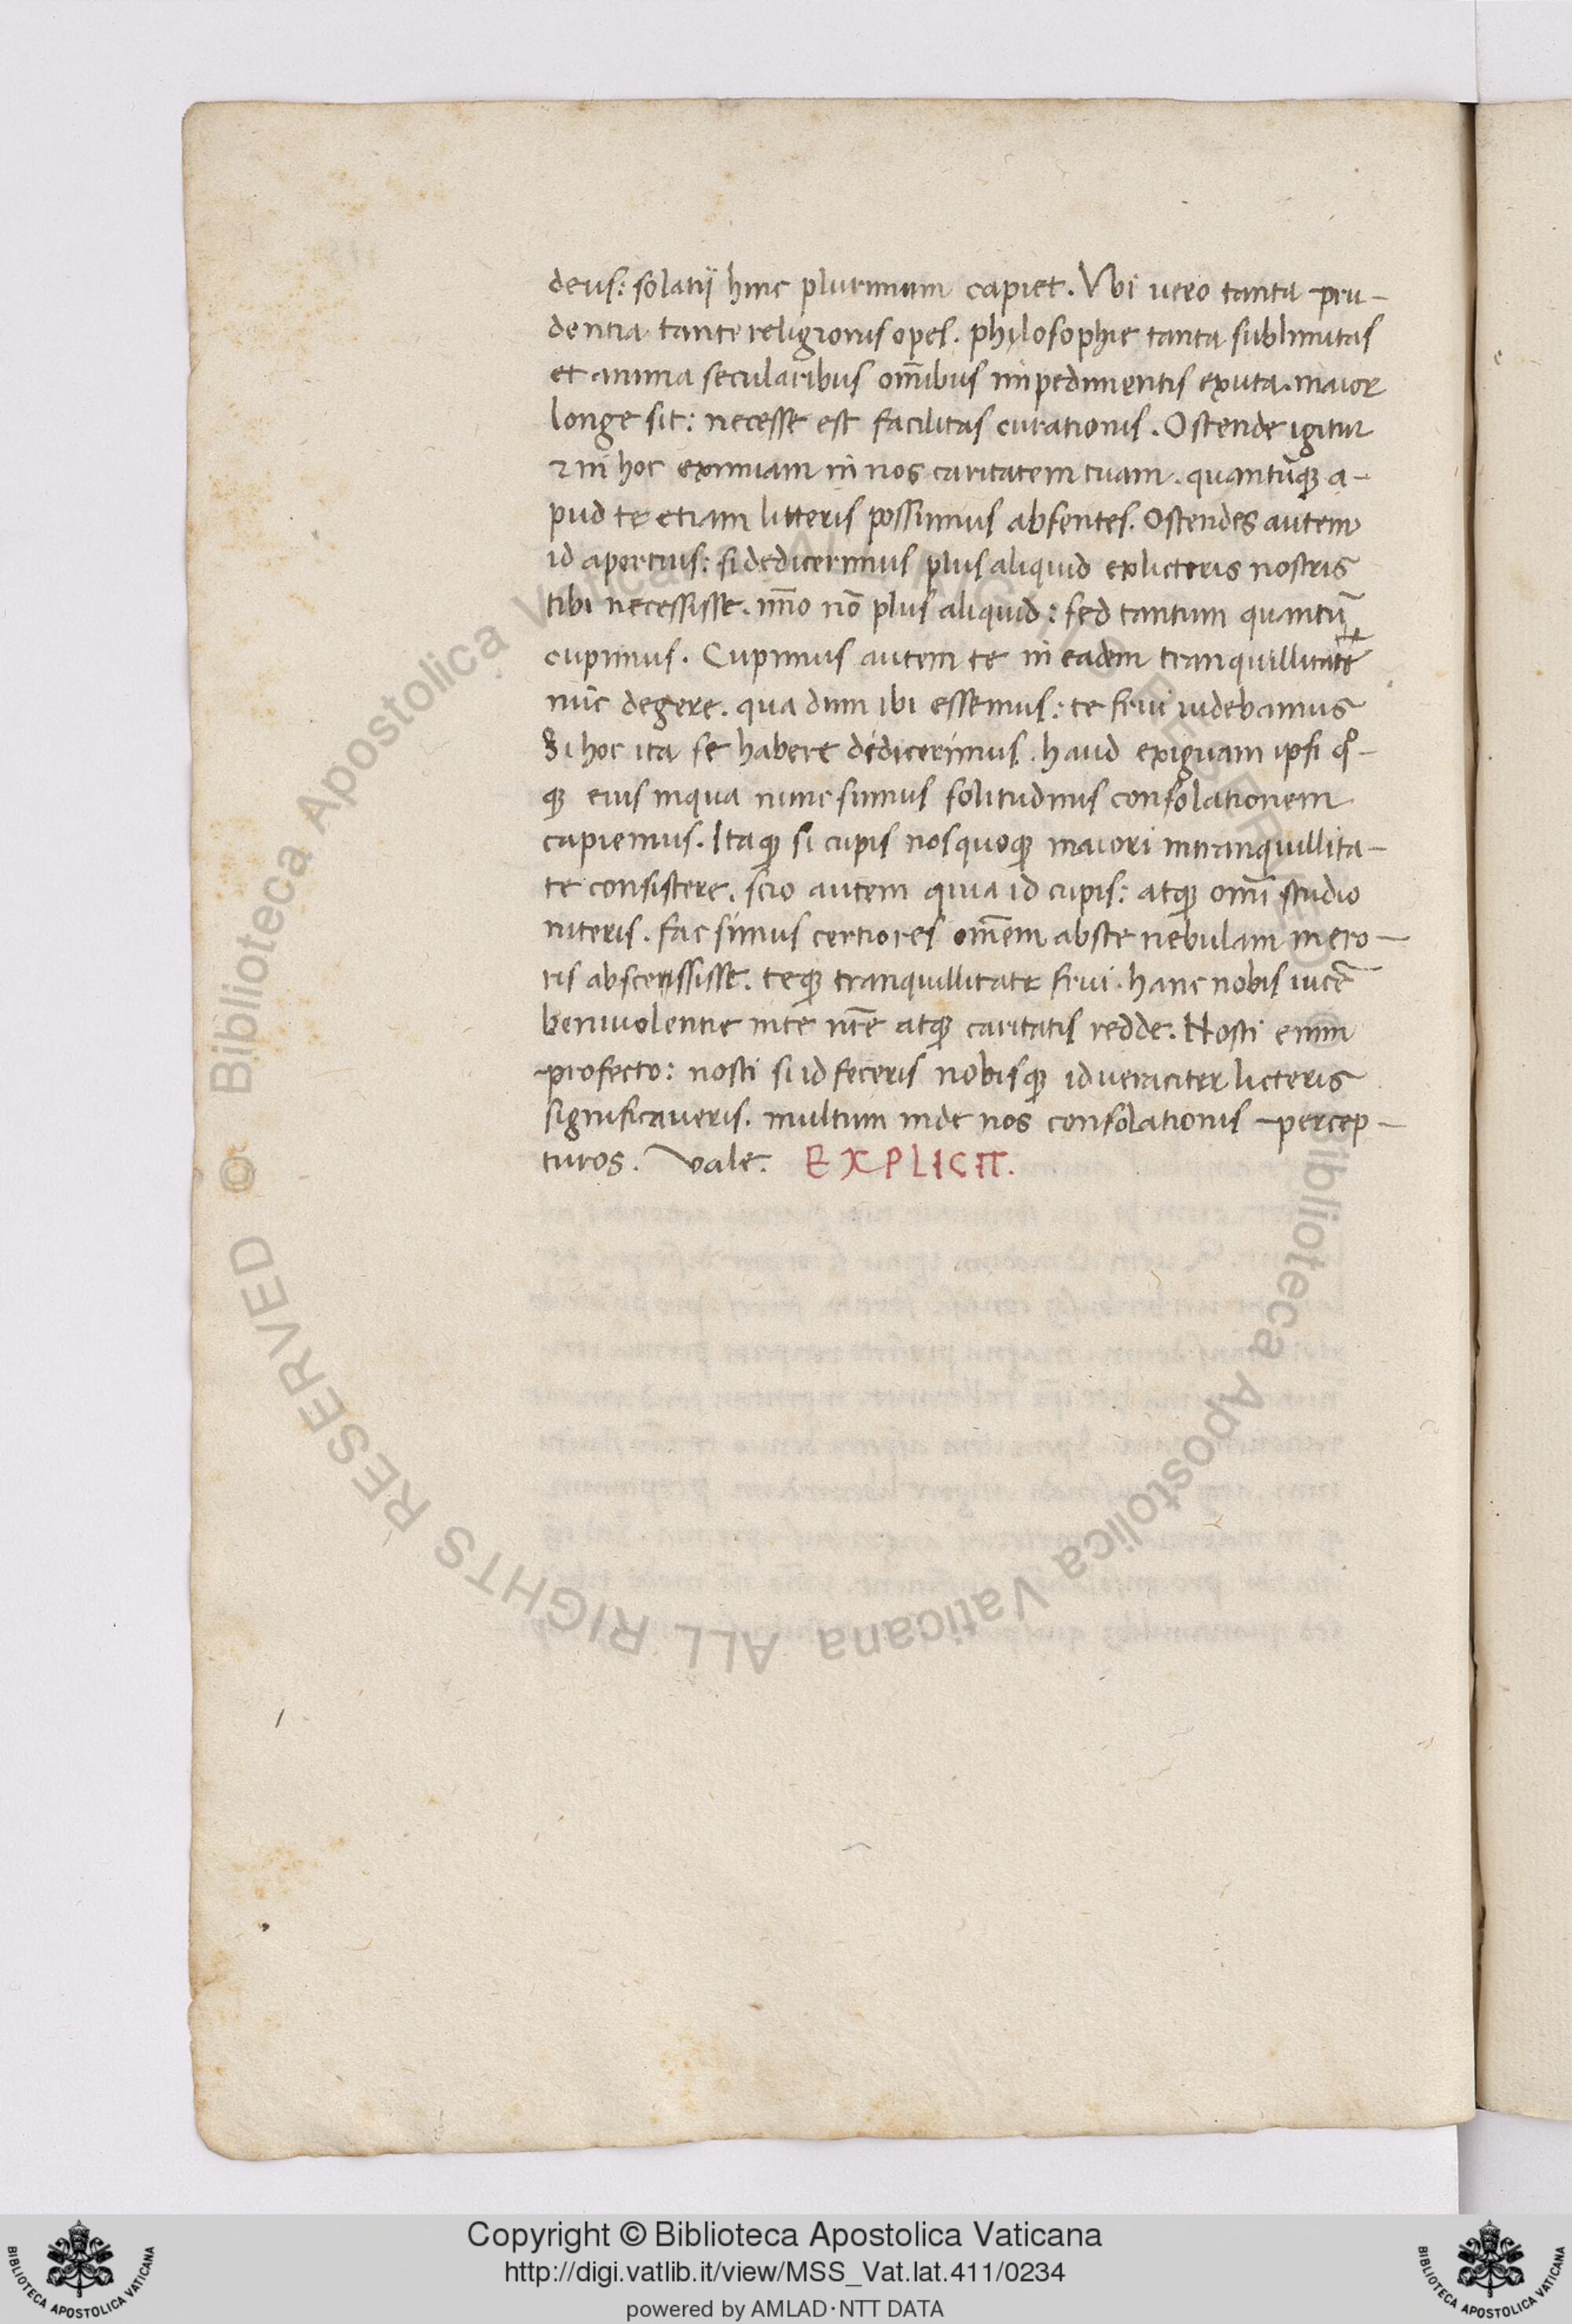 deus: solatij hinc plurimum capiet. Vbi uero tanta pru-
dentia tante religionis opes. philosophie tanta sublimitas
et anima secularibus om̅ibus impedimentis exuta. maior
longe sit: necesse est facilitas curationis. Ostende igitur
⁊ in hoc eximiam in nos caritatem tuam. quantūqꝫ a-
pud te etiam litteris possimus absentes. Ostendes autem
id apertius: si dedicerimus plus aliquid ex licteris nostris
tibi necessisse. im̅o nō plus aliquid: sed tantum quantū
cupimus. Cupimus autem te in eadem tranquillitate
nūc degere. qua dum ibi essemus: te frui uidebamus
Si hoc ita se habere didicerimus. haud exiguam ipsi qͦ-
qꝫ eius inqua nunc sumus solitudinis consolationem
capiemus. Itaqꝫ si cupis nos quoqꝫ maiori intranquillita-
te consistere. scio autem quia id cupis: atqꝫ om̅i studio
niteris. fac simus certiores om̅em abste nebulam mero-
ris abscessisse. teqꝫ tranquillitate frui. hanc nobis uicē
beniuolentie inte nr̅e atqꝫ caritatis redde. Nosti enim
profecto: nosti si id feceris nobisqꝫ id ueraciter licteris
significaueris. multum inde nos consolationis percep-
turos. Vale. EXPLICIT.
Biblioteca Apostolica Vaticana ALL RIGHTS RESERVED ©
Copyright © Biblioteca Apostolica Vaticana
http://digi.vatlib.it/view/MSS_Vat.lat.411/0234
powered by AMLAD·NTT DATA
BIBLIOTECA APOSTOLICA VATICANA
BIBLIOTECA APOSTOLICA VATICANA